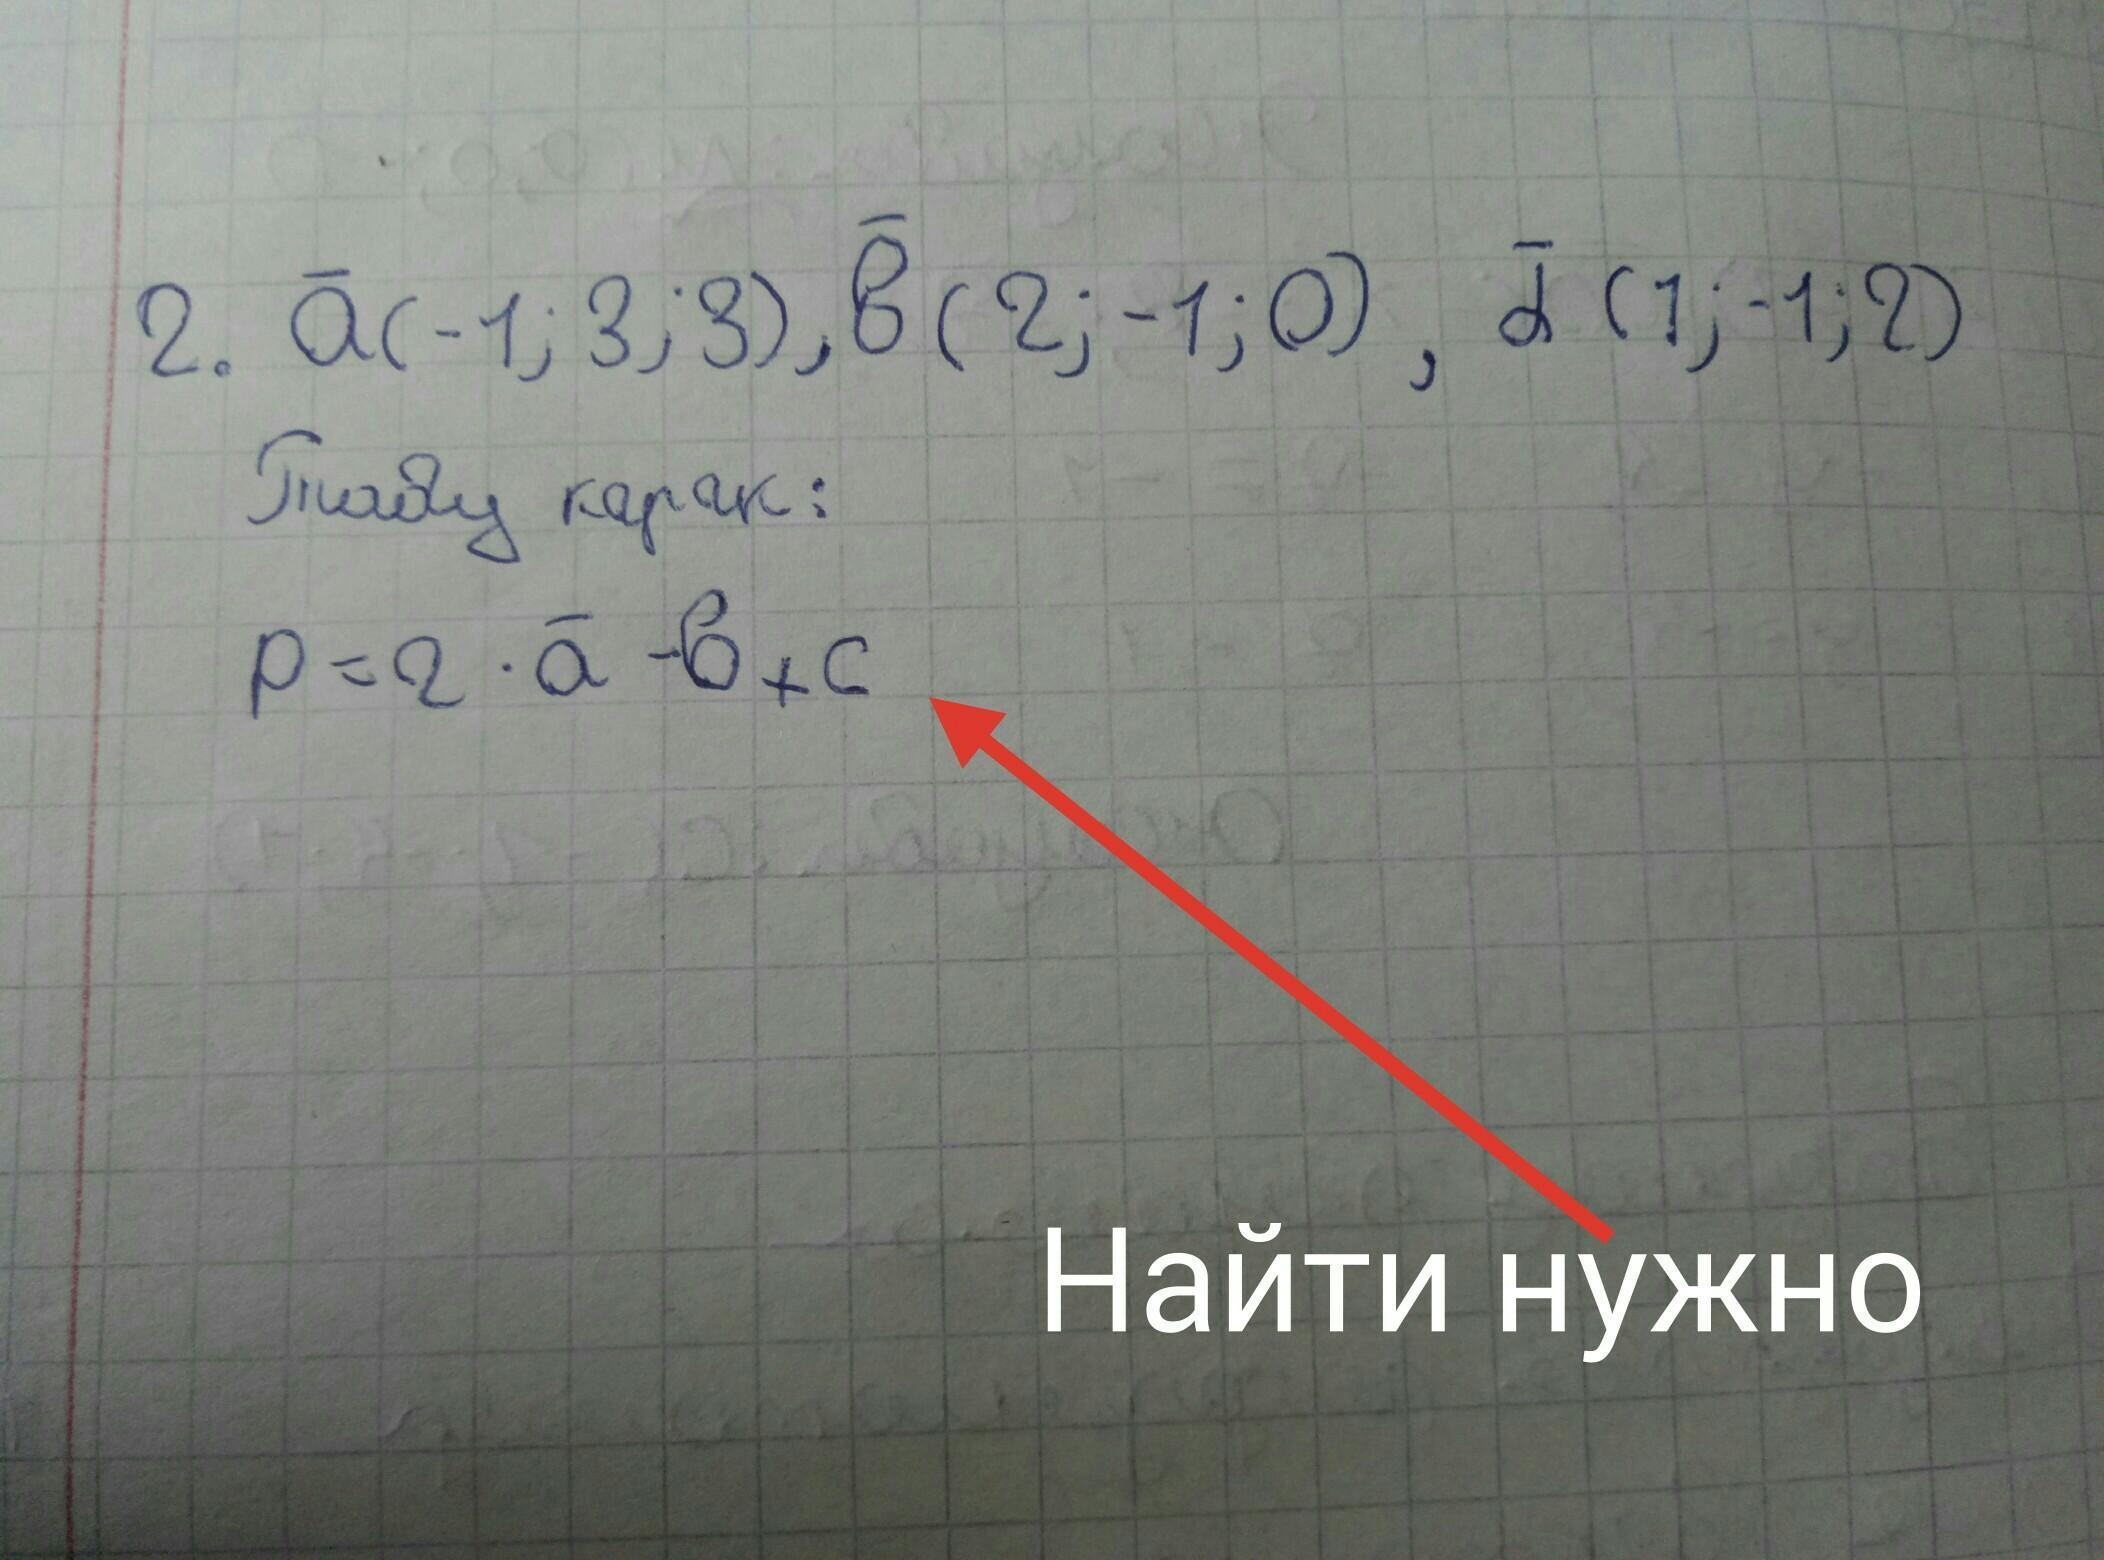 2. ā(-1; 3; 3), b̄(2; -1; 0), d̄(1; -1; 2)
Табу карак:
p=2·ā-b+c
Найти нужно